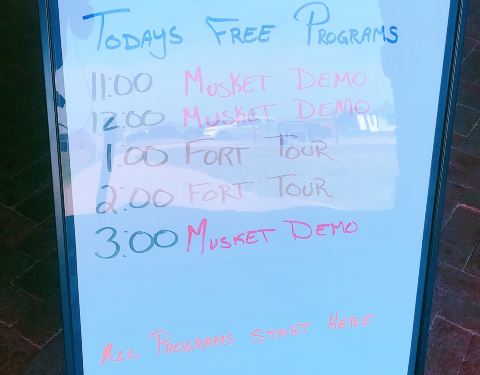 Todays Free Programs
11:00 Musket Demo
12:00 Musket Demo
1:00 Fort Tour
2:00 Fort Tour
3:00 Musket Demo
All Programs Start Here